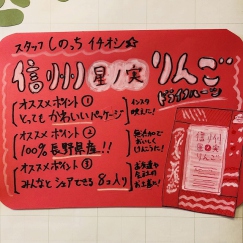 スタッフ しのっち イチオシ☆
信州 星ノ実 りんご
ドライスイーツ
オススメポイント①
とっても かわいいパッケージ
インスタ
映えに!
オススメポイント②
100% 長野県産!!
無添加で
おいしく
オススメポイント③
みんなと シェアできる 8コ入り
お土産に!
信州
星ノ実
りんご